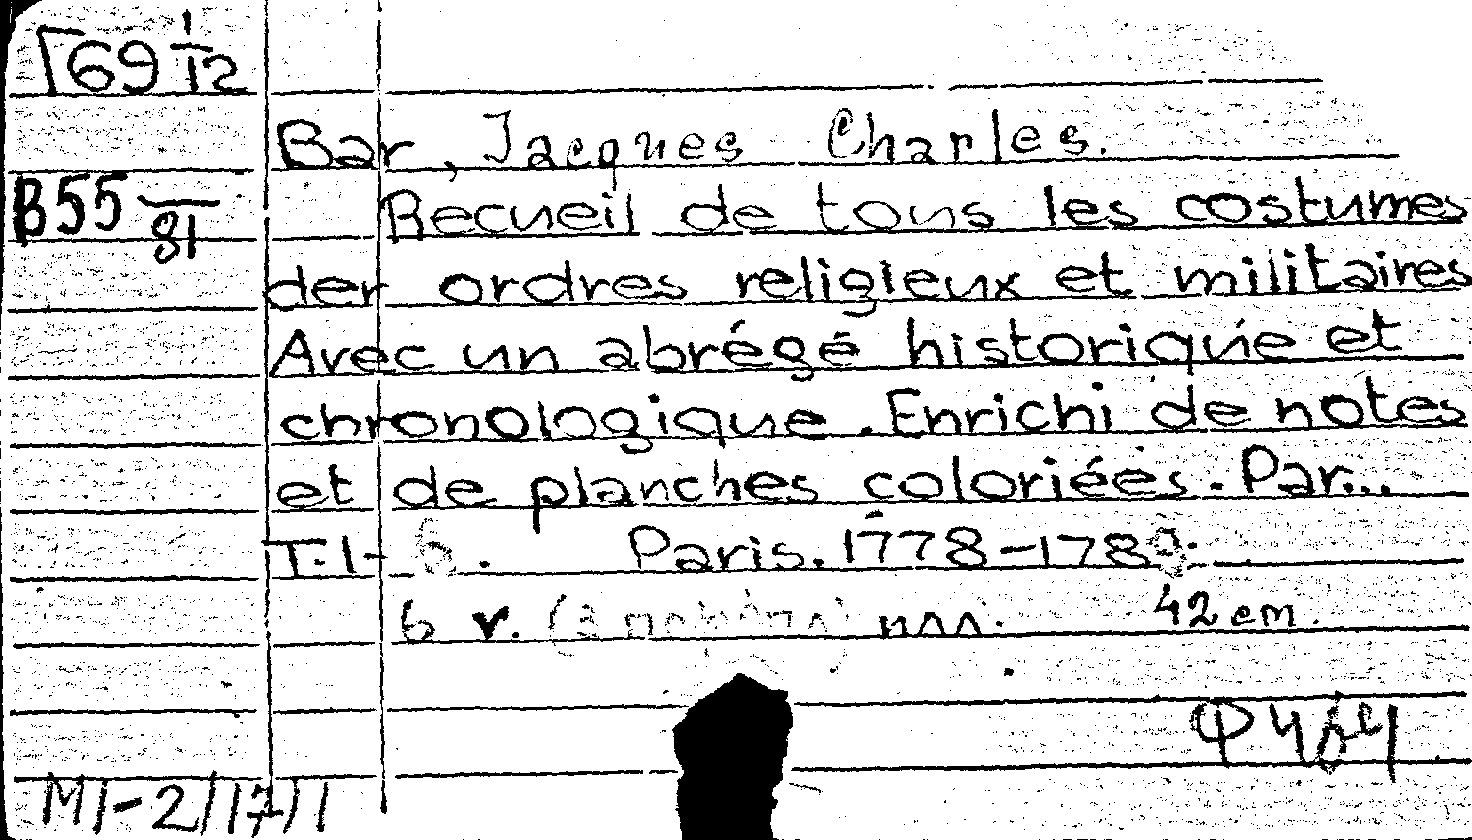 Г69 1/12
Bar, Jacques Charles.
В55 —/81
Recueil de tous les costumes
der ordres religieux et militaires
Avec un abrégé historique et
chronologique. Enrichi de notes
et de planches coloriées. Par...
T.1-6. Paris. 1778-1789.
6 v. илл. 42 cm.
MI-2/1711